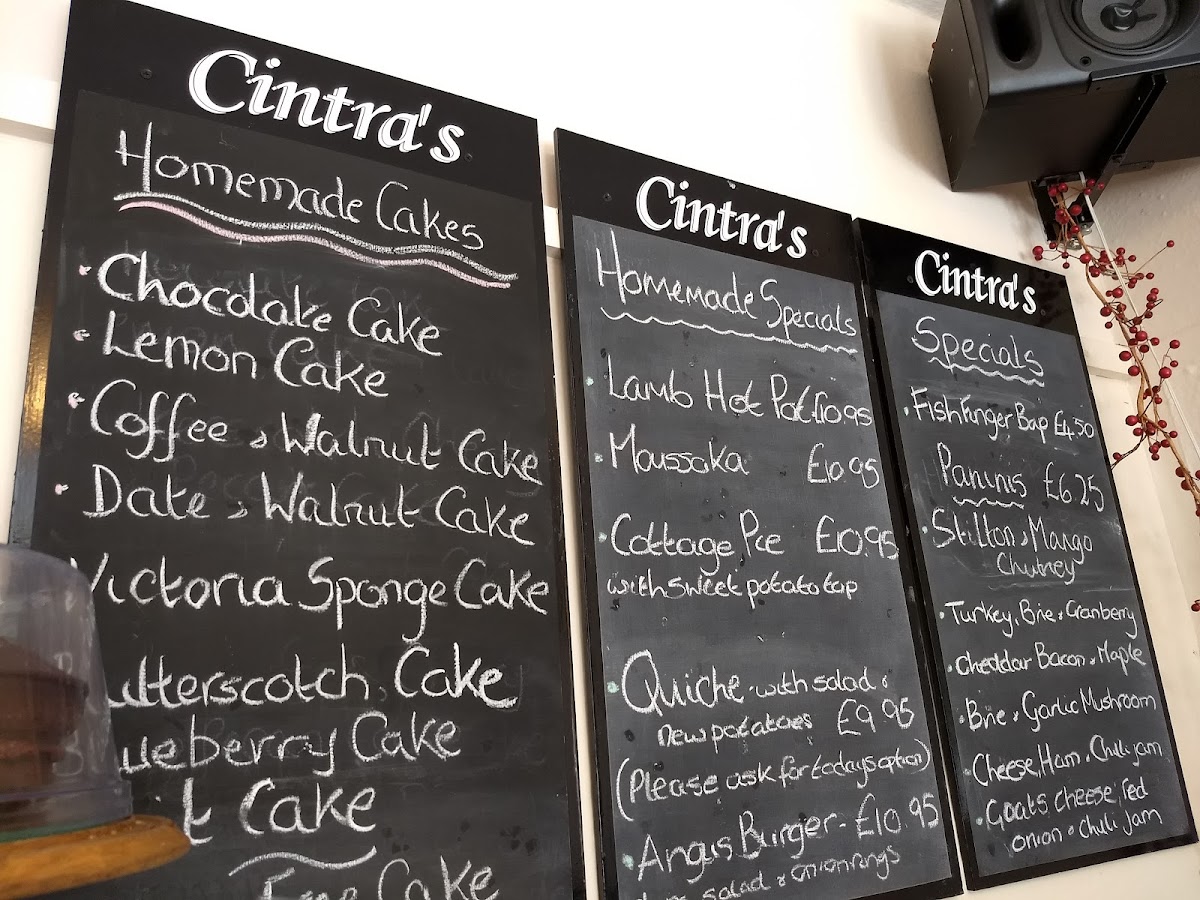 Cintra's
Homemade Cakes
• Chocolate Cake
• Lemon Cake
• Coffee & Walnut Cake
• Date & Walnut Cake
Victoria Sponge Cake
utterscotch Cake
ueberry Cake
t Cake
Free Cake
Cintra's
Homemade Specials
• Lamb Hot Pot £10.95
• Moussaka £10.95
• Cottage Pie £10.95
with sweet potato top
• Quiche - with salad &
new potatoes £9.95
(Please ask for todays option)
• Angus Burger - £10.95
salad & onion rings
Cintra's
Specials
• Fish Finger Bap £4.50
Paninis £6.25
• Stilton & Mango
Chutney
• Turkey, Brie & Cranberry
• Cheddar Bacon & Maple
• Brie & Garlic Mushroom
• Cheese, Ham & Chili jam
• Goats cheese, red
onion & Chili jam